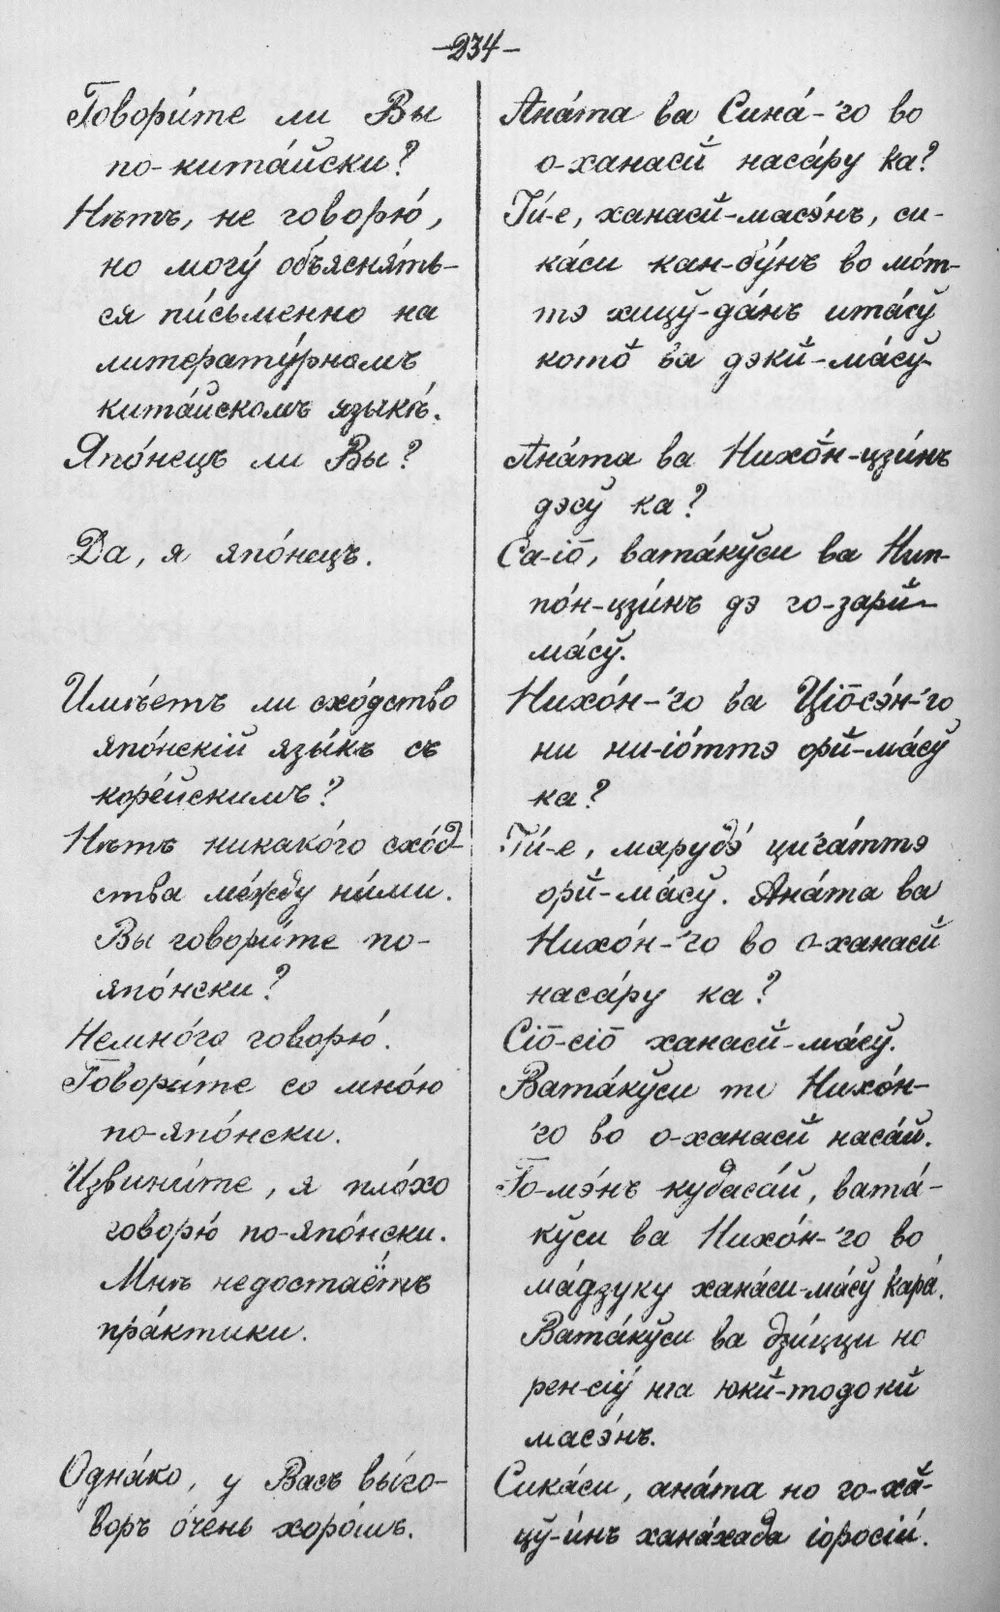 -234-
Говори́те ли Вы
по-кита́йски?
Нѣтъ, не говорю́,
но могу́ объясня́ть-
ся пи́сьменно на
литерату́рномъ
кита́йскомъ языкѣ́.
Япо́нецъ ли Вы?
Да, я япо́нецъ.
Имѣ́етъ ли схо́дство
япо́нскій язы́къ съ
коре́йскимъ?
Нѣтъ никако́го схо́д-
ства ме́жду ни́ми.
Вы говори́те по-
япо́нски?
Немно́го говорю́.
Говори́те со мно́ю
по-япо́нски.
Извини́те, я пло́хо
говорю́ по-япо́нски.
Мнѣ недостаётъ
пра́ктики.
Одна́ко, у Васъ вы́го-
воръ о́чень хоро́шъ.
Ана́та ва Сина́-'го во
о-ханасй наса́ру ка?
Іи́-е, ханасй-масэ́нъ, си-
ка́си кан-бу́нъ во мо́т-
тэ хицў-да́нъ ита́сў
кото̆ ва дэкй-ма́сў
Ана́та ва Нихо́н-цзи́нъ
дэсў ка?
Са-іо̄, вата́кўси ва Нип-
по́н-цзи́нъ дэ го-зарй-
ма́сў.
Нихо́н-'го ва Ціо̄сэ́н-'го
ни ни-іо́ттэ орй-ма́сў
ка?
Іи́-е, марудэ́ цига́ттэ
орй-ма́сў. Ана́та ва
Нихо́н-'го во о-ханасй
наса́ру ка?
Сіо̄-сіо̄ ханасй-ма́сў.
Вата́кўси то Нихо́н-
'го во о-ханасй наса́й.
Го-мэ́нъ кудаса́й, вата́-
кўси ва Нихо́н-'го во
ма́дзуку хана́си-ма́сў кара́.
Вата́кўси ва дзи́цци но
рен-сіу́ нга юкй-тодокй
масэ́нъ.
Сика́си, ана́та но го-хӑ-
цў-и́нъ хана́хада іоросіи́.